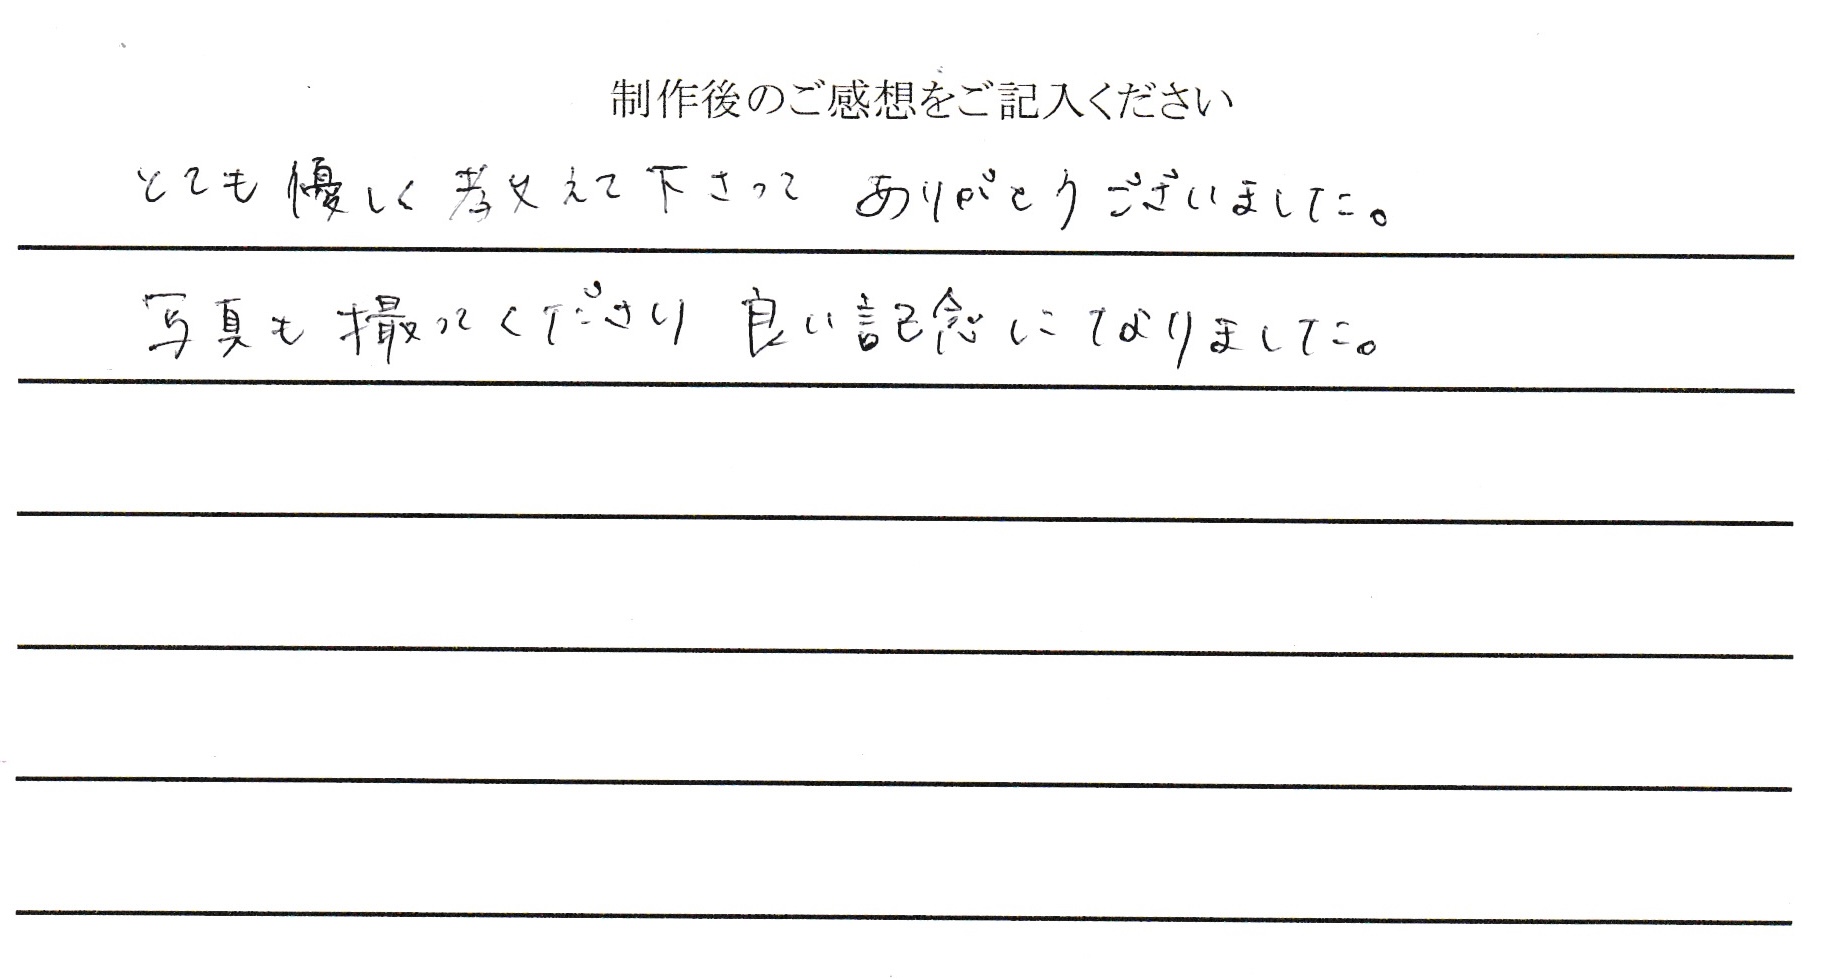 制作後のご感想をご記入ください
とても優しく教えて下さって ありがとうございました。
写真も撮ってくださり 良い記念になりました。